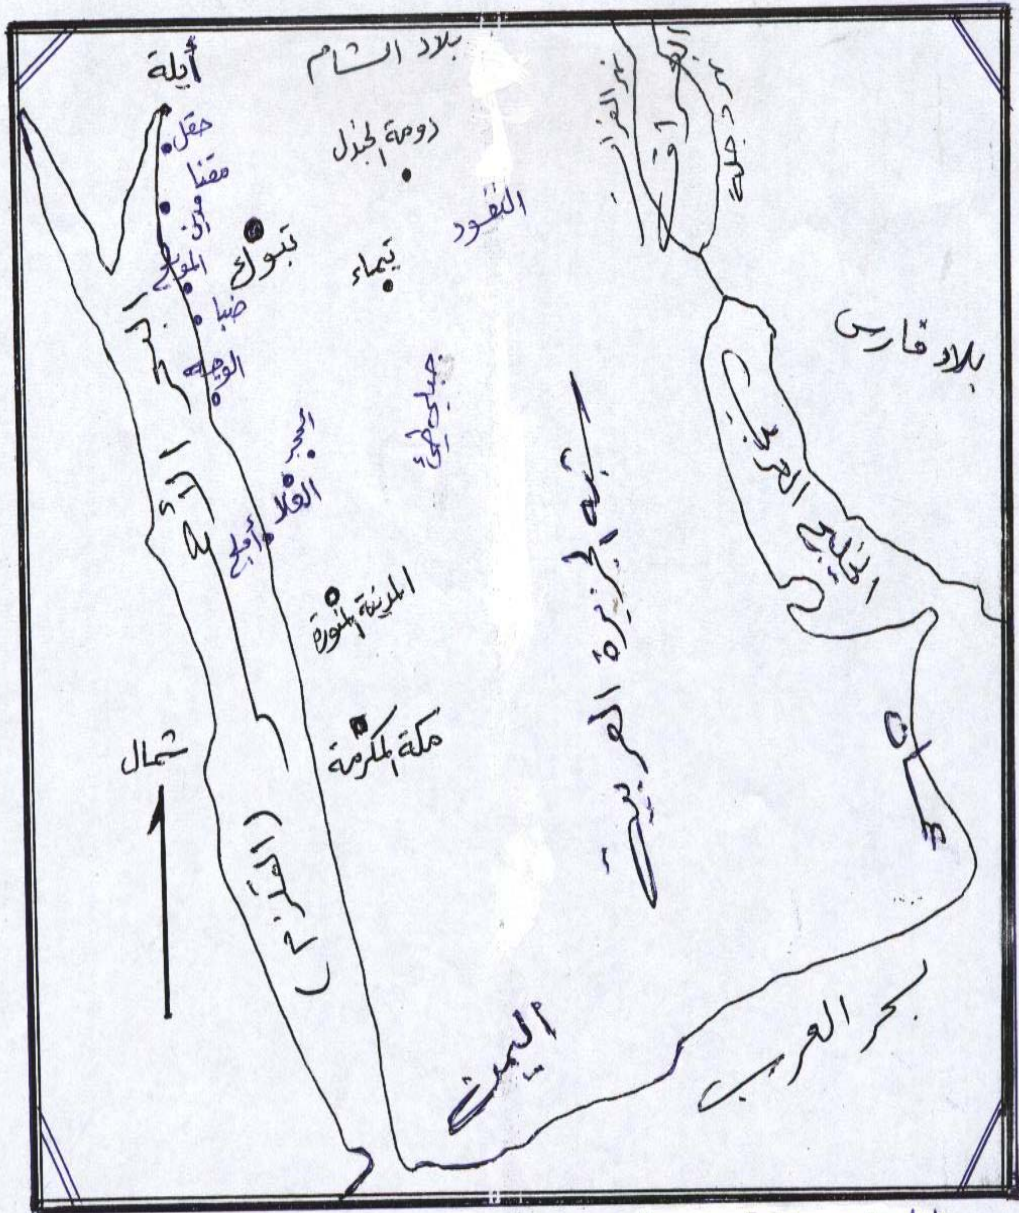 بلاد الشام
أيلة
حقل
مقنا
المويلح
ضبا
الوجه
تبوك
دومة الجندل
تيماء
النفود
نهر الفرات
العراق
نهر دجلة
بلاد فارس
الخليج العربي
جبلي طيئ
الحجر
العلا
أملج
المدينة المنورة
مكة المكرمة
شبه الجزيرة العربية
البحر الأحمر
(القلزم)
شمال
عمان
اليمن
بحر العرب